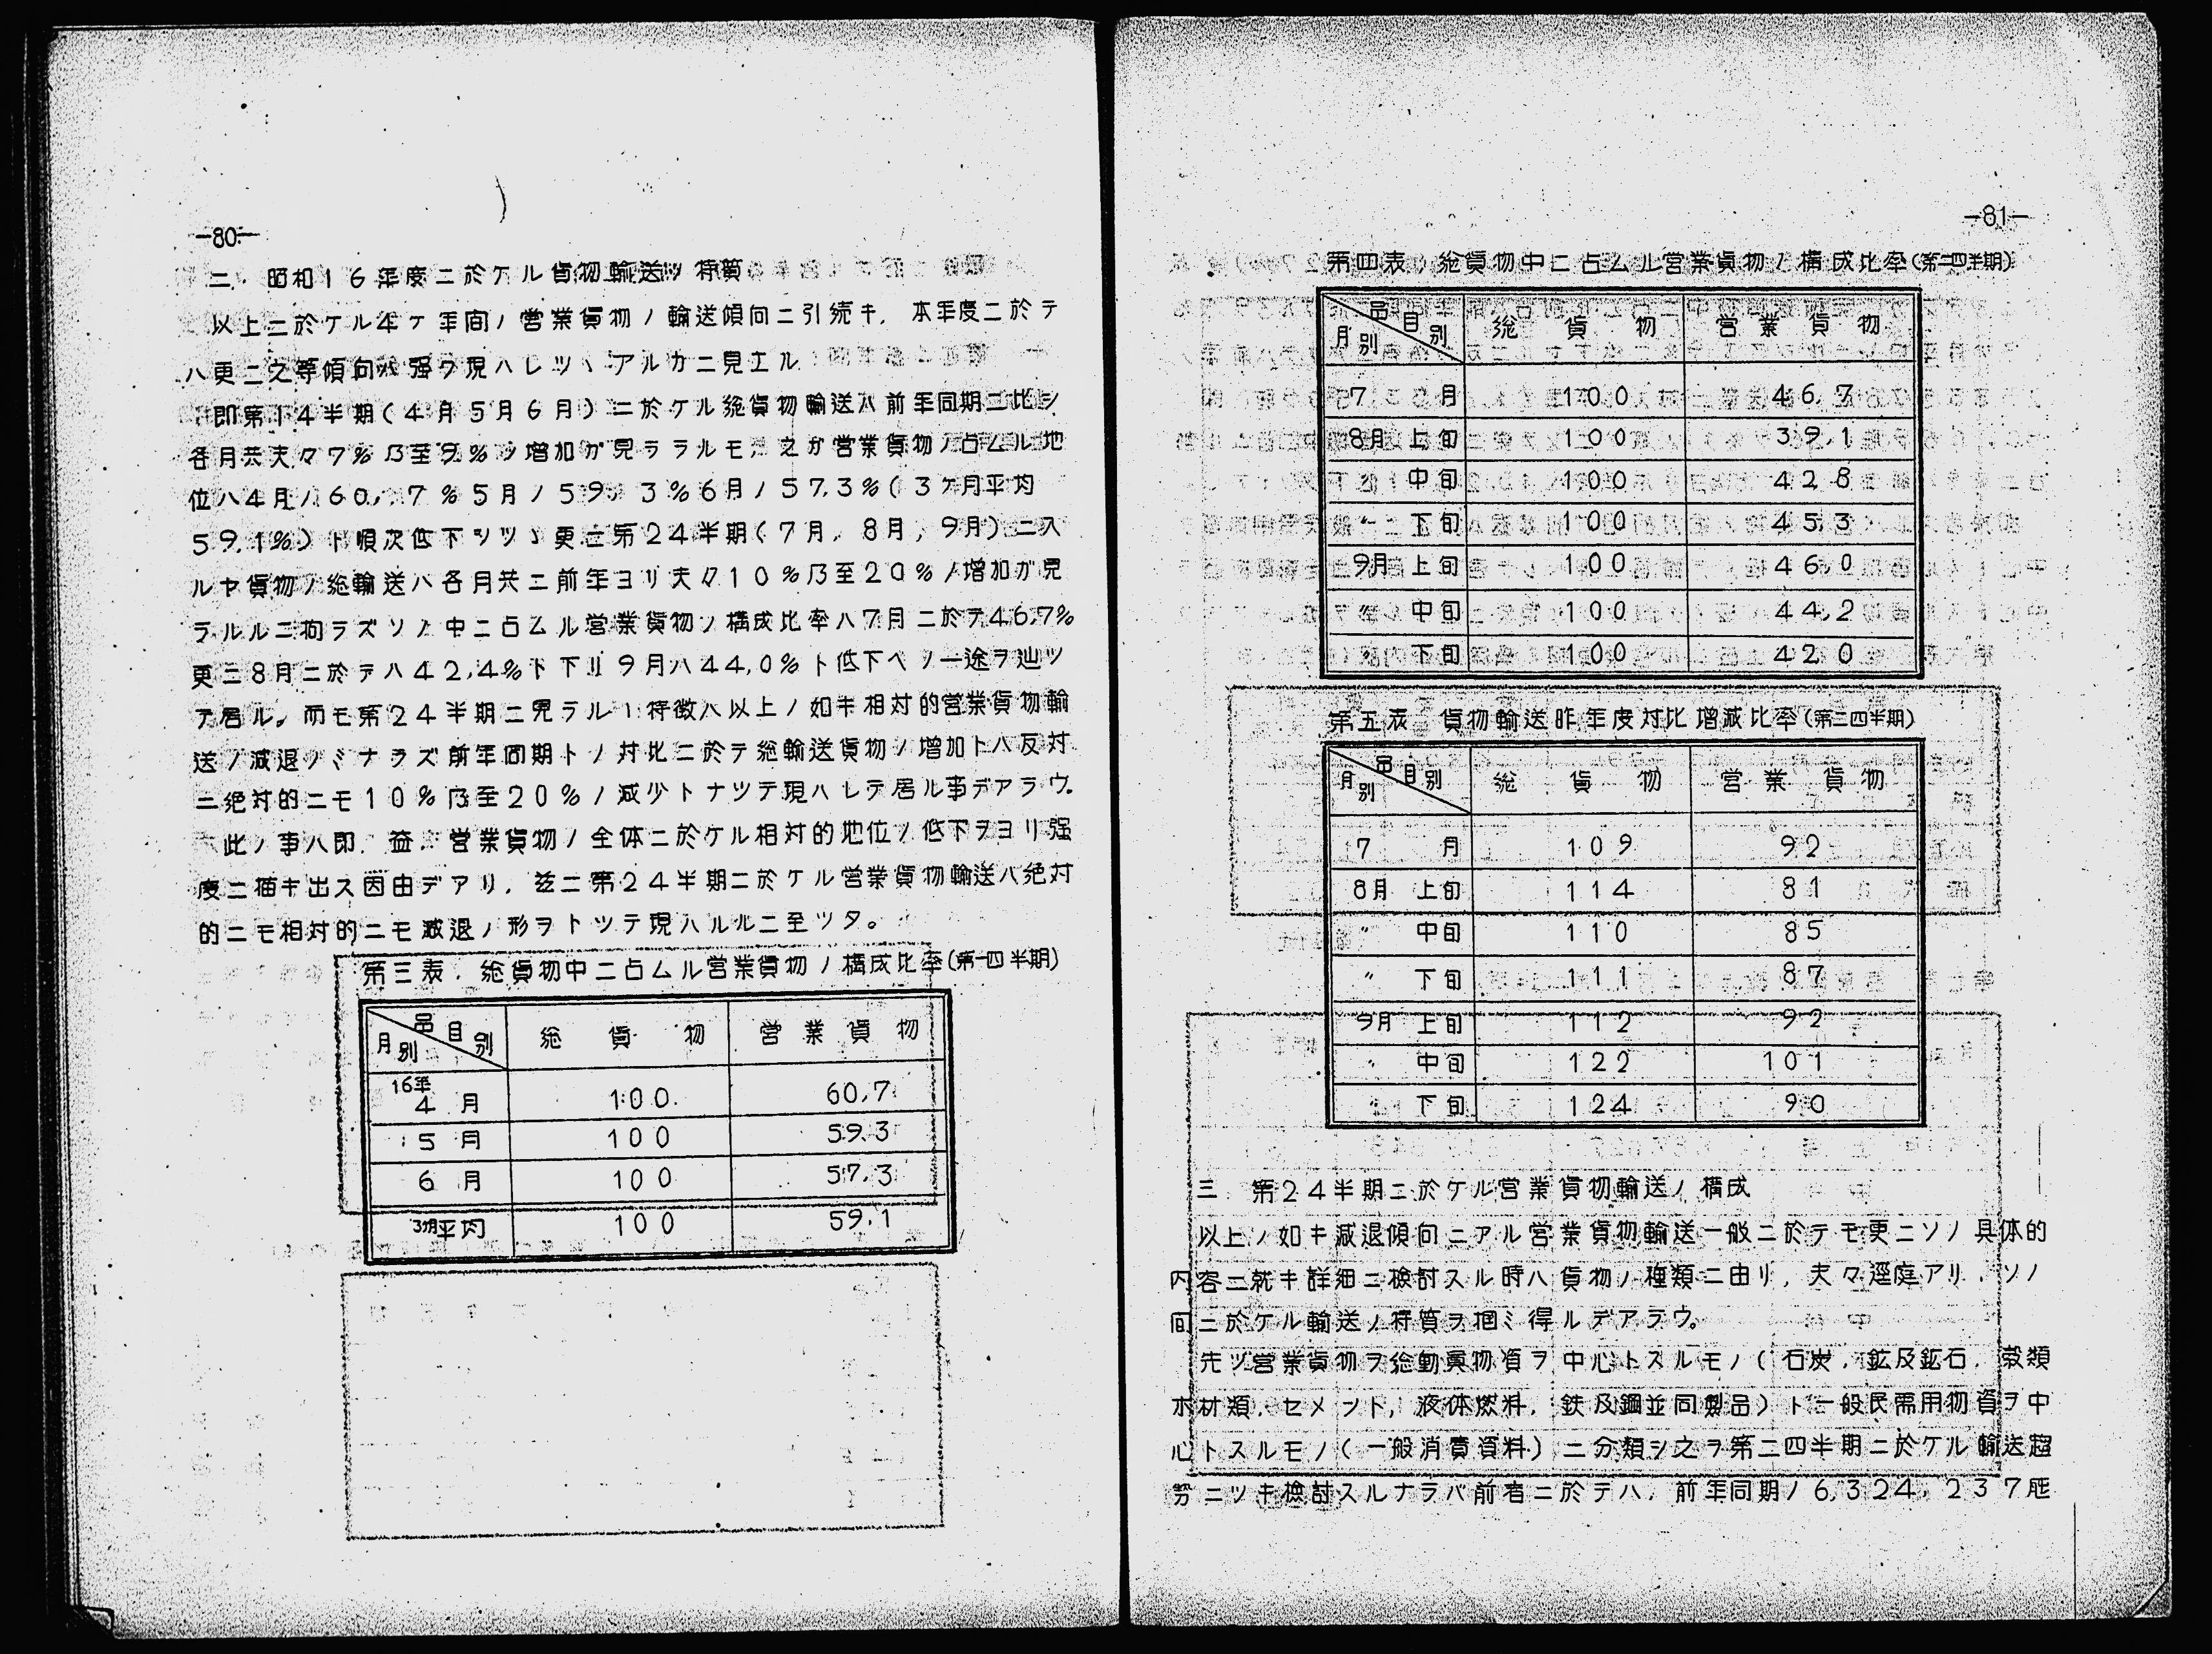 —80—
二、昭和16年度ニ於ケル貨物輸送ノ特質
以上ニ於ケル年ケ年間ノ営業貨物ノ輸送傾向ニ引続キ，本年度ニ於テ
ハ更ニ之等傾向ハ強ク現ハレツヽアルカニ見エル
即第14半期(4月5月6月)ニ於ケル総貨物輸送ハ前年同期ニ比シ
各月共夫々7%乃至9%ノ増加ガ見ララルモ之ガ営業貨物ノ占ムル地
位ハ4月ノ60.7%5月ノ59.3%6月ノ57.3%(3ケ月平均
59.1%)ト順次低下シツヽ更ニ第24半期(7月，8月，9月)ニ入
ルヤ貨物ノ総輸送ハ各月共ニ前年ヨリ夫々10%乃至20%ノ増加ガ見
ラルルニ拘ラズソノ中ニ占ムル営業貨物ノ構成比率ハ7月ニ於テ46.7%
更ニ8月ニ於テハ42.4%ト下リ9月ハ44.0%ト低下ヘノ一途ヲ辿ツ
テ居ル。而モ第24半期ニ見ラル丶特徴ハ以上ノ如キ相対的営業貨物輸
送ノ減退ノミナラズ前年同期トノ対比ニ於テ総輸送貨物ノ増加トハ反対
ニ絶対的ニモ10%乃至20%ノ減少トナツテ現ハレテ居ル事デアラウ。
此ノ事ハ即，益々営業貨物ノ全体ニ於ケル相対的地位ノ低下ヲヨリ強
度ニ描キ出ス因由デアリ，茲ニ第24半期ニ於ケル営業貨物輸送ハ絶対
的ニモ相対的ニモ減退ノ形ヲトツテ現ハルルニ至ツタ。
第三表．総貨物中ニ占ムル営業貨物ノ構成比率(第一四半期)
品目別 月別 総貨物 営業貨物
16年4月 100 60.7
5月 100 59.3
6月 100 57.3
3ケ月平均 100 59.1
—81—
第四表ノ総貨物中ニ占ムル営業貨物ノ構成比率(第二四半期)
品目別 月別 総貨物 営業貨物
7月 100 46.7
8月 上旬 100 39.1
〃 中旬 100 42.8
〃 下旬 100 45.3
9月 上旬 100 46.0
〃 中旬 100 44.2
〃 下旬 100 42.0
第五表 貨物輸送昨年度対比増減比率(第二四半期)
品目別 月別 総貨物 営業貨物
7月 109 92
8月 上旬 114 81
〃 中旬 110 85
〃 下旬 111 87
9月 上旬 112 92
〃 中旬 122 101
〃 下旬 124 90
三 第24半期ニ於ケル営業貨物輸送ノ構成
以上ノ如キ減退傾向ニアル営業貨物輸送一般ニ於テモ更ニソノ具体的
内容ニ就キ詳細ニ検討スル時ハ貨物ノ種類ニ由リ，夫々逕庭アリ，ソノ
間ニ於ケル輸送ノ特質ヲ掴ミ得ルデアラウ。
先ヅ営業貨物ヲ総動員物資ヲ中心トスルモノ(石炭，鉱及鉱石，穀類
木材類，セメント，液体燃料，鉄及鋼並同製品)ト一般民需用物資ヲ中
心トスルモノ(一般消費資料)ニ分類シ之ヲ第二四半期ニ於ケル輸送趨
勢ニツキ検討スルナラバ前者ニ於テハ，前年同期ノ6,324,237瓲